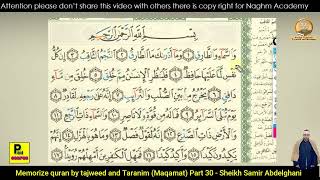 Attention please don't share this video with others there is copy right for Naghm Academy
بِسْمِ ٱللَّهِ ٱلرَّحْمَٰنِ ٱلرَّحِيمِ
وَٱلسَّمَآءِ وَٱلطَّارِقِ ١ وَمَآ أَدْرَىٰكَ مَا ٱلطَّارِقُ ٢ ٱلنَّجْمُ ٱلثَّاقِبُ ٣ إِن كُلُّ
نَفْسٍ لَّمَّا عَلَيْهَا حَافِظٌ ٤ فَلْيَنظُرِ ٱلْإِنسَٰنُ مِمَّ خُلِقَ ٥ خُلِقَ مِن
مَّآءٍ دَافِقٍ ٦ يَخْرُجُ مِنۢ بَيْنِ ٱلصُّلْبِ وَٱلتَّرَآئِبِ ٧ إِنَّهُۥ عَلَىٰ رَجْعِهِۦ لَقَادِرٌ ٨
يَوْمَ تُبْلَى ٱلسَّرَآئِرُ ٩ فَمَا لَهُۥ مِن قُوَّةٍ وَلَا نَاصِرٍ ١٠ وَٱلسَّمَآءِ ذَاتِ ٱلرَّجْعِ ١١
وَٱلْأَرْضِ ذَاتِ ٱلصَّدْعِ ١٢ إِنَّهُۥ لَقَوْلٌ فَصْلٌ ١٣ وَمَا هُوَ بِٱلْهَزْلِ ١٤ إِنَّهُمْ
يَكِيدُونَ كَيْدًا ١٥ وَأَكِيدُ كَيْدًا ١٦ فَمَهِّلِ ٱلْكَٰفِرِينَ أَمْهِلْهُمْ رُوَيْدًۢا ١٧
Memorize quran by tajweed and Taranim (Maqamat) Part 30 - Sheikh Samir Abdelghani